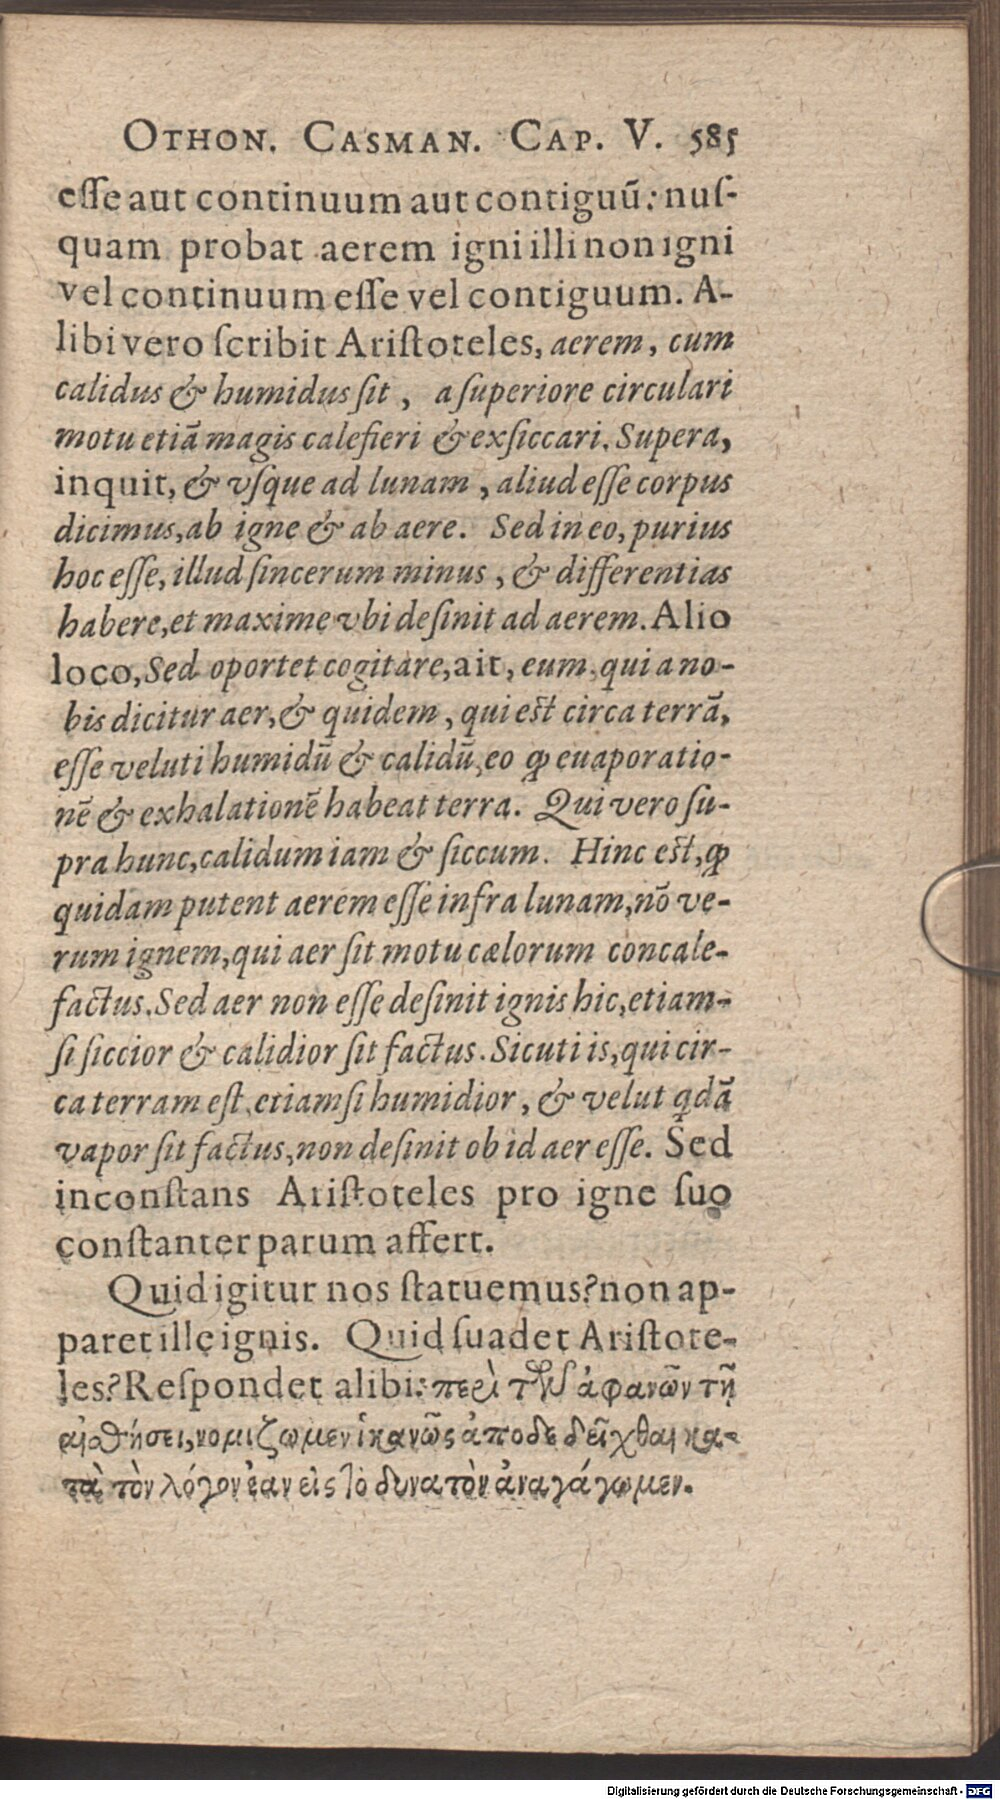 OTHON. CASMAN. CAP. V. 585
eſſe aut continuum aut contiguũ: nuſ-
quam probat aerem igni illi non igni
vel continuum eſſe vel contiguum. A-
libi vero ſcribit Ariſtoteles, aerem, cum
calidus & humidus ſit, a ſuperiore circulari
motu etiã magis calefieri & exſiccari. Supera,
inquit, & vſque ad lunam, aliud eſſe corpus
dicimus, ab igne & ab aere. Sed in eo, purius
hoc eſſe, illud ſincerum minus, & differentias
habere, et maxime vbi deſinit ad aerem. Alio
loco, Sed oportet cogitare, ait, eum, qui a no-
bis dicitur aer, & quidem, qui eſt circa terrã,
eſſe veluti humidũ & calidũ, eo ꝙ euaporatio-
nẽ & exhalationẽ habeat terra. Qui vero ſu-
pra hunc, calidum iam & ſiccum. Hinc eſt, ꝙ
quidam putent aerem eſſe infra lunam, nõ ve-
rum ignem, qui aer ſit motu cælorum concale-
factus. Sed aer non eſſe deſinit ignis hic, etiam-
ſi ſiccior & calidior ſit factus. Sicuti is, qui cir-
ca terram eſt, etiamſi humidior, & velut qdã
vapor ſit factus, non deſinit ob id aer eſſe. Sed
inconſtans Ariſtoteles pro igne ſuo
conſtanter parum affert.
Quid igitur nos ſtatuemus? non ap-
paret ille ignis. Quid ſuadet Ariſtote-
les? Reſpondet alibi: περὶ τῶν ἀφανῶν τῇ
αἰσθήσει, νομίζωμεν ἱκανῶς ἀποδεδεῖχθαι κα-
τὰ τὸν λόγον ἐαν εἰς τὸ δυνατὸν ἀναγάγωμεν.
Digitalisierung gefördert durch die Deutsche Forschungsgemeinschaft - DFG